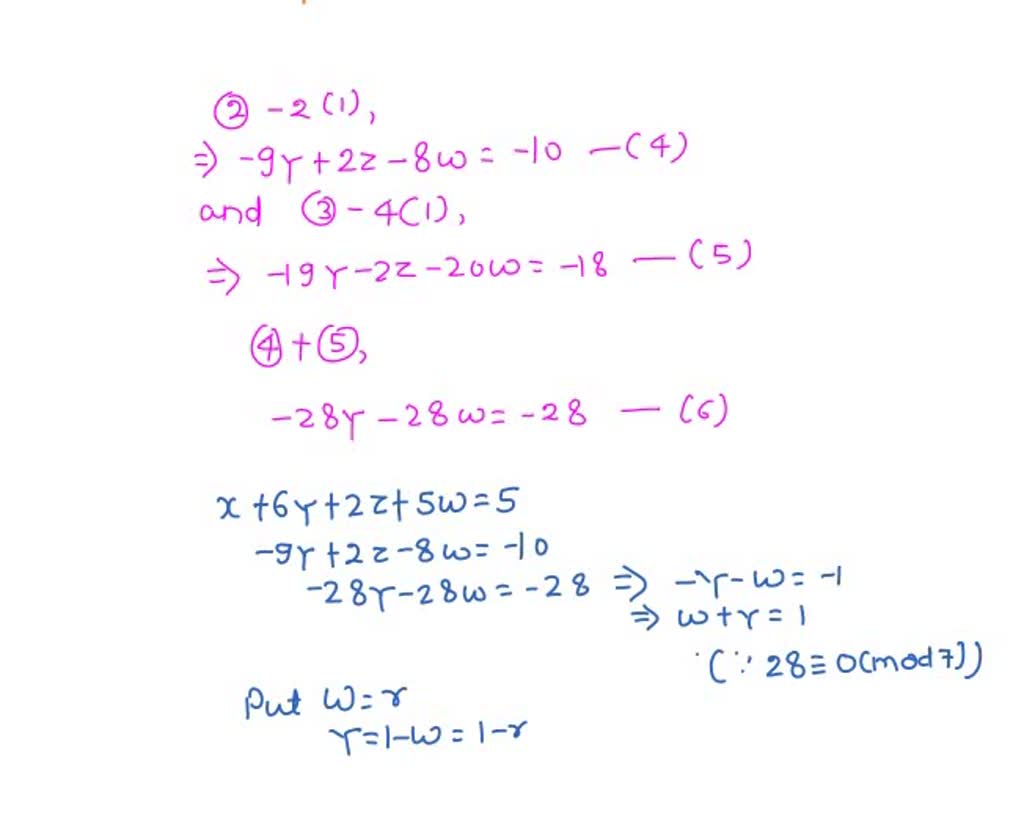 ② -2(1),
⇒ -9y+2z-8w = -10 —(4)
and ③ - 4(1),
⇒ -19y-2z-20w = -18 —(5)
④+⑤,
-28y-28w = -28 — (6)
x+6y+2z+5w=5
-9y+2z-8w = -10
-28y-28w = -28 ⇒ -y-w = -1
⇒ w+y = 1
(∵ 28≡0(mod7))
Put w=r
y=1-w=1-r